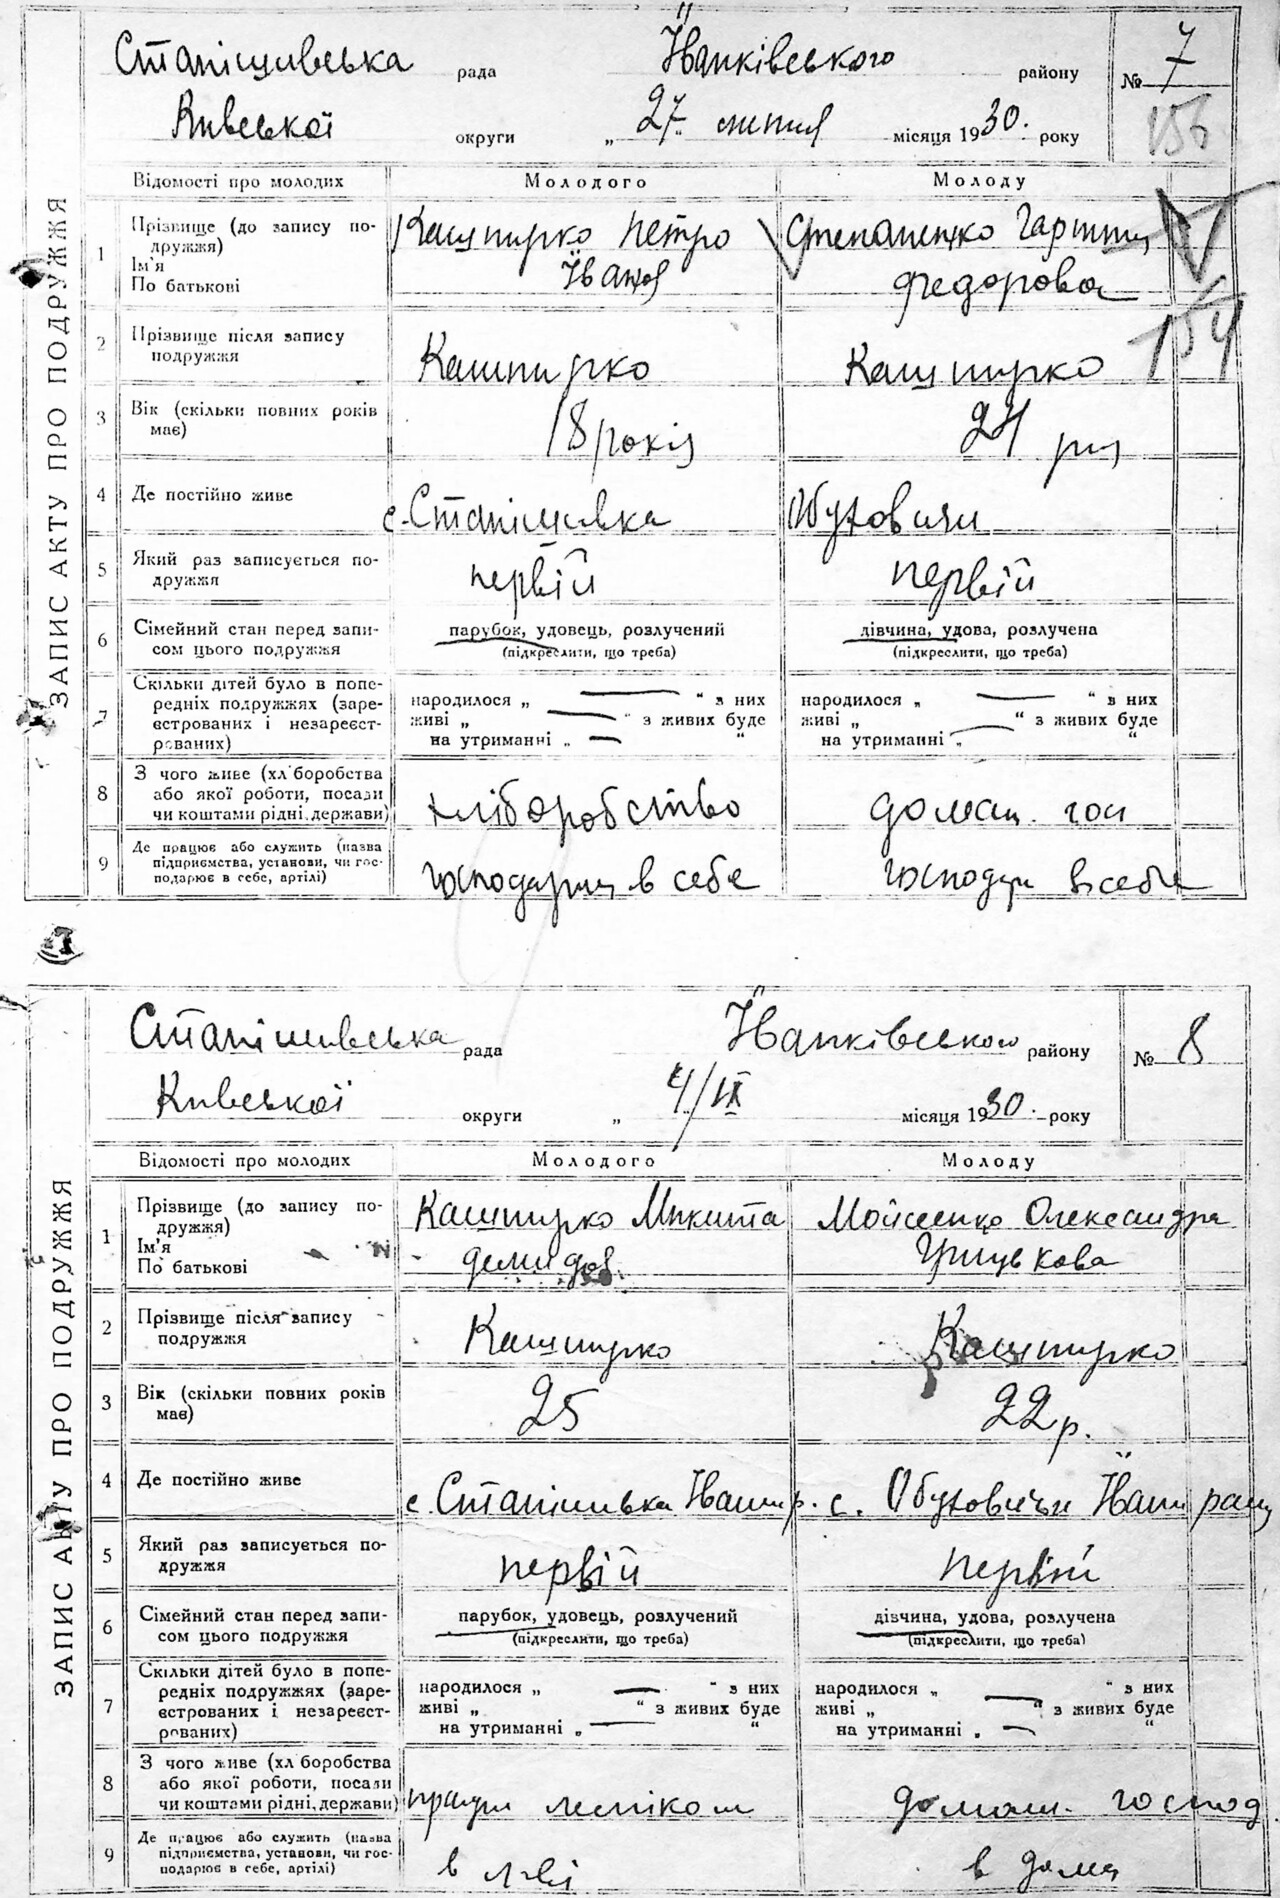 ЗАПИС АКТУ ПРО ПОДРУЖЖЯ
Станішивська рада Їванківського району № 7
Київської округи „ 27 липня місяця 1930. року 156
Відомості про молодих Молодого Молоду
1 Прізвище (до запису по- Кашпирко Петро Степаненко
дружжя)
Ім'я Їванов Федорова
По батькові
2 Прізвище після запису
подружжя Кашпирко Кашпирко 154
3 Вік (скільки повних років
має) 18 років
4 Де постійно живе с. Станішивка Обуховичи
5 Який раз записується по- первій первій
дружжя
6 Сімейний стан перед запи- парубок, удовець, розлучений дівчина, удова, розлучена
сом цього подружжя (підкреслити, що треба) (підкреслити, що треба)
7 Скільки дітей було в попе-
редніх подружжях (заре- народилося „ — “ з них народилося „ — “ з них
єстрованих і незареєст- живі „ — “ з живих буде живі „ — “ з живих буде
рованих) на утриманні „ — “ на утриманні „ “
8 З чого живе (хліборобства
або якої роботи, посади хліборобство домаш. гос
чи коштами рідні, держави)
9 Де працює або служить (назва
підприємства, установи, чи гос- в себе в себе
подарює в себе, артілі)
ЗАПИС АКТУ ПРО ПОДРУЖЖЯ
Станішивська рада Їванківського району № 8
Київської округи „ 4/IX місяця 1930. року
Відомості про молодих Молодого Молоду
1 Прізвище (до запису по- Кашпирко Микита Мойсеенко Олександра
дружжя)
Ім'я Демидов Грицькова
По батькові
2 Прізвище після запису
подружжя Кашпирко Кашпирко
3 Вік (скільки повних років 25 22 р.
має)
4 Де постійно живе с. Станішивка с. Обуховичи
5 Який раз записується по- первій первій
дружжя
6 Сімейний стан перед запи- парубок, удовець, розлучений дівчина, удова, розлучена
сом цього подружжя (підкреслити, що треба) (підкреслити, що треба)
7 Скільки дітей було в попе-
редніх подружжях (заре- народилося „ — “ з них народилося „ “ з них
єстрованих і незареєст- живі „ “ з живих буде живі „ — “ з живих буде
рованих) на утриманні „ — “ на утриманні „ — “
8 З чого живе (хліборобства
або якої роботи, посади лесніком домаш. господ
чи коштами рідні, держави)
9 Де працює або служить (назва
підприємства, установи, чи гос- в в дома
подарює в себе, артілі)